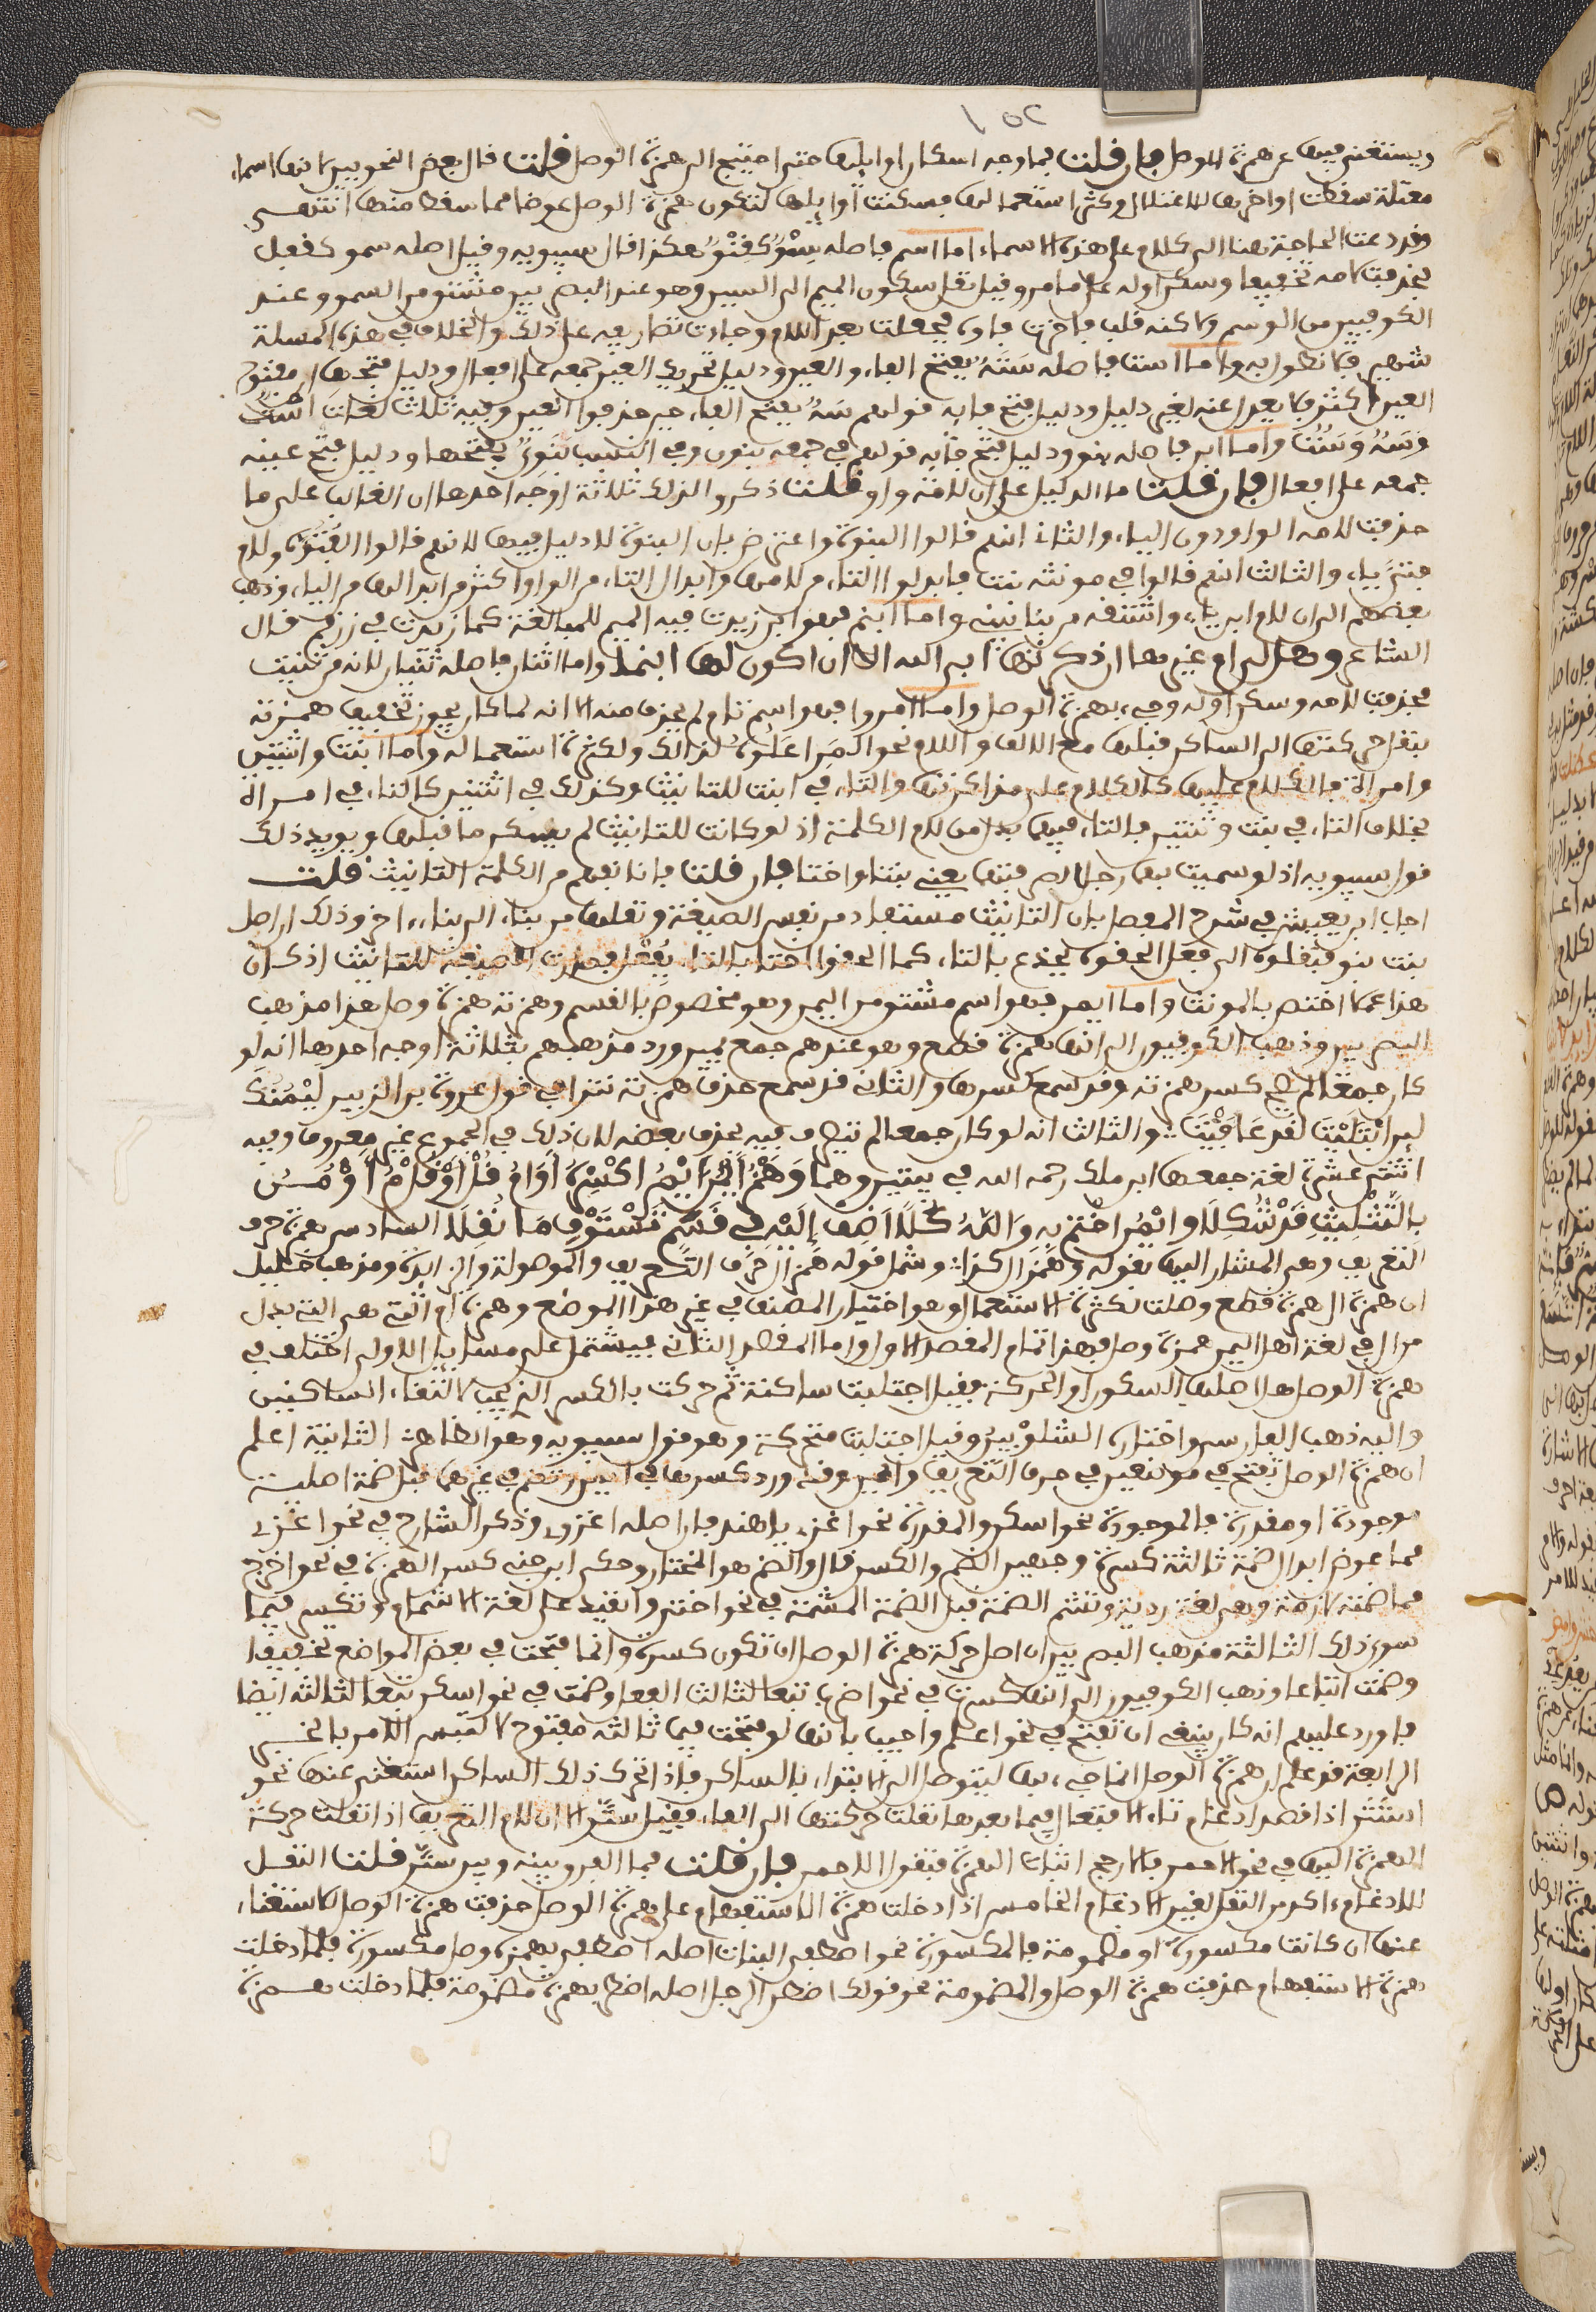 ١٥٢
ويستغنى فيها عن همزة الوصل فإن قلت فما وجه اسكان اوائلها حتى احتيج الى همزة الوصل قلت قال بعض النحويين لانها اسماء
معتلة سقطت اواخرها للاعتلال وكثر استعمالها فسكنت اوائلها لتكون همزة الوصل عوضا مما سقط منها انتهى
وقد دعت الحاجة هنا الى كلام على هذه الاسماء اما اسم فاصله سِمْوٌ كقِنْوٌ هكذا قال سيبويه وقيل اصله سمو كقفل
فحذفت لامه تخفيفا وسكن اوله على ما مر وقيل نقل سكون الميم الى السين وهو عند البصريين مشتق من السمو وعند
الكوفيين من الوسم ولاكنه قلب فاخرت فاوه فجعلت بعد اللام وجاءت تصاريفه على ذلك والخلاف في هذه المسلة
شهير فلا نطول به واما است فاصله سَتَهٌ بفتح الفاء والعين ودليل تحريك العين جمعه على افعال ودليل فتحها ان مفتوح
العين اكثر فلا يعدل عنه لغير دليل ودليل فتح فايه قولهم سَهٌ بفتح الفاء حين حذفوا العين وفيه ثلاث لغات اسْتٌ
وَسَهٌ وَسَتٌ واما ابن فاصله بنو ودليل فتح فايه قولهم في جمعه بنون وفي النسب بَنَوِيٌّ بفتحها ودليل فتح عينه
جمعه على افعال فإن قلت ما الدليل على ان لامه واو قلت ذكروا لذلك ثلاثة اوجه احدها ان الغالب على ما
حذفت لامه الواو دون الياء والثاني انهم قالوا البنوة واعترض بان البنوة لا دليل فيها لانهم قالوا الفُتُوَّة ولام
فتى ياء والثالث انهم قالوا في مونثه بنت فابدلوا التاء من لامها وابدال التاء من الواو اكثر من ابدالها من الياء وذهب
بعضهم الى ان لام ابن ياء واشتقه من بنى يبني واما ابنم فهو ابن زيدت فيه الميم للمبالغة كما زيدت في زرقم قال
الشاعر وهل لي ام غيرها ان ذكرتها ابى الله الا ان اكون لها ابنما واما اثنان فاصله ثنيان لانه من ثنيت
فحذفت لامه وسكن اوله وجيء بهمزة الوصل واما امرو فهو اسم تام لم يحذف منه الا انه لما كان يجوز تخفيف همزته
بنقل حركتها الى الساكن قبلها مع الالف واللام نحو المَرِ اعلوه لذالك ولكثرة استعماله واما ابنت واثنتين
وامراة فالكلام عليها كالكلام على مذاكرتها والتاء في ابنت للتانيث وكذلك في اثنتين كالتاء في امراة
بخلاف التاء في بنت وثنتين فالتاء فيها بدل من لام الكلمة اذ لو كانت للتانيث لم يسكن ما قبلها ويويد ذلك
قول سيبويه اذ لو سميت بها رجلا لصرفتها يعني بنتا واختا فإن قلت فانا نفهم من الكلمة التانيث قلت
اجاب ابن يعيش في شرح المفصل بان التانيث مستفاد من نفس الصيغة ونقلها من بناء الى بناء اخر وذلك ان اصل
بنت بنو فنقلوه الى فِعْل الحقوه بجذع بالتاء كما الحقوا اختا بالتاء بقُفْل فصارت الصيغة للتانيث اذ كان
هذا عملا اختص بالمونث واما ايمن فهو اسم مشتق من اليمن وهو مخصوص بالقسم وهمزته همزة وصل هذا مذهب
البصريين وذهب الكوفيون الى انها همزة قطع وهو عندهم جمع يمين ورد مذهبهم بثلاثة اوجه احدها انه لو
كان جمعا لم تكسر همزته وقد سمع كسرها والثاني قد سمع حذف همزته نثرا في قول عروة بن الزبير لَيْمُنُكَ
لين ابْتَلَيْتَ لقد عَافَيْتَ والثالث انه لو كان جمعا لم يتصرف فيه بحذف بعضه لان ذلك في الجموع غير معروف وفيه
اثنتى عشرة لغة جمعها ابن ملك رحمه الله في بيتين وهما وَهَمْزُ أيْمُنَ ايْمُ اكْسِرْ أوَامُ قُلْ أوْ قُلْ مِ أوْ مُنُ
بالتَّثْلِيثِ قَدْ شُكِلَا وايْمُنُ اخْتِمْ بِهِ وَاللَّهُ كُلًّا اَضِفْ إلَيْهِ فِي قَسَمٍ تَسْتَوْفِ مَا نُقِلَا السادس همزة حرف
التعريف وهي المشار اليها بقوله وَهَمْزُ ال كذا وشمل قوله هَمْز ال حرف التعريف والموصولة والزايدة ومذهب الخليل
ان همزة ال همزة قطع وصلت لكثرة الاستعمال وهو اختيار المصنف في غير هذا الموضع وهمزة ام التي هي التي بدل
من ال في لغة اهل اليمن همزة وصل فهذا تمام المفصل الاول واما المفصل الثاني فيشتمل على مسايل الاولى اختلف في
همزة الوصل هل اصلها السكون او الحركة فقيل اجتلبت ساكنة ثم حركت بالكسر الذي يجب لالتقاء الساكنين
واليه ذهب الفارسي واختاره الشلوْبين وقيل اجتلبت متحركة وهو قول سيبويه وهو الظاهر الثانية اعلم
ان همزة الوصل تفتح في موضعين في حرف التعريف وايمن وقد ورد كسرها في ايمن وتضم في غيرهما قبل ضمة اصلية
موجودة او مقدرة فالموجودة نحو اسكن والمقدرة نحو اغزي يا هند فان اصله اغزوي وذكر الشارح في نحو اغزي
مما عوض ابدال ضمة ثالثة كسرة وجهين الضم والكسر قال والضم هو المختار وحكى ابن جني كسر الهمزة في نحو اخرج
مما ضمته لازمة وهي لغة ردية وتشم الضمة قبل الضمة المشمة في نحو اختير وانقيد على لغة الاشمام وتكسر فيما
سوى ذلك الثالثة مذهب البصريين ان اصل حركة همزة الوصل ان تكون كسرة وانما فتحت في بعض المواضع تخفيفا
وضمت اتباعا وذهب الكوفيون الى انها كسرت في نحو اضرب تبعا لثالث الفعل وضمت في نحو اسكن تبعا لثالثه ايضا
فاورد عليهم انه كان ينبغي ان تفتح في نحو اعلم واجيب بانها لو فتحت فيما ثالثه مفتوح لالتبس الامر بالخبر
الرابعة قد علم ان همزة الوصل انما جيء بها ليتوصل الى الابتداء بالساكن فاذا تحرك ذلك الساكن استغني عنها نحو
استَتَر اذا قصد ادغام تاء الافتعال فيما بعدها نقلت حركتها الى الفاء فقيل ستَّر الا ان لام التعريف اذا نقلت حركة
الهمزة اليها في نحو الاحمر فالارجح اثبات الهمزة فتقول اللحمر فإن قلت فما الفرق بينه وبين ستَّر قلت النقل
للادغام اكثر من النقل لغير الادغام الخامس اذا دخلت همزة الاستفهام على همزة الوصل حذفت همزة الوصل للاستغناء
عنها ان كانت مكسورة او مضمومة فالمكسورة نحو اصطفى البنات اصله ااصطفى بهمزة وصل مكسورة فلما دخلت
همزة الاستفهام حذفت همزة الوصل والمضمومة نحو قولك اضطر الرجل اصله اضطر بهمزة مضمومة فلما دخلت همزة